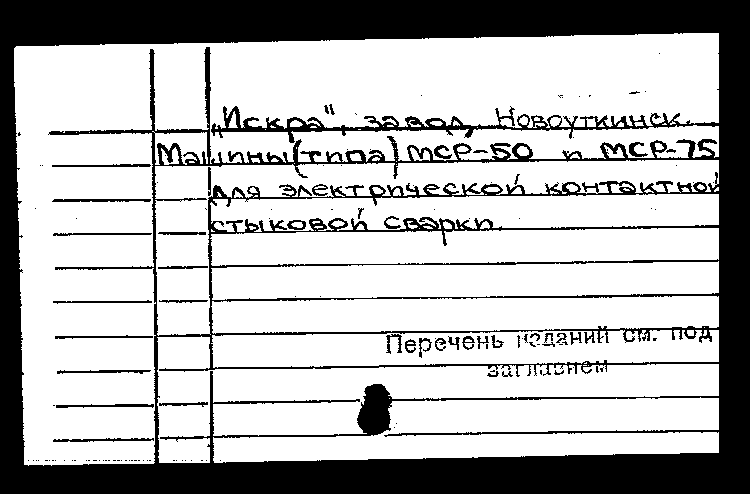 „Искра", завод, Новоуткинск.
Машины (типа) МСР-50 и МСР-75
для электрической контактной
стыковой сварки.
Перечень изданий см. под
заглавием